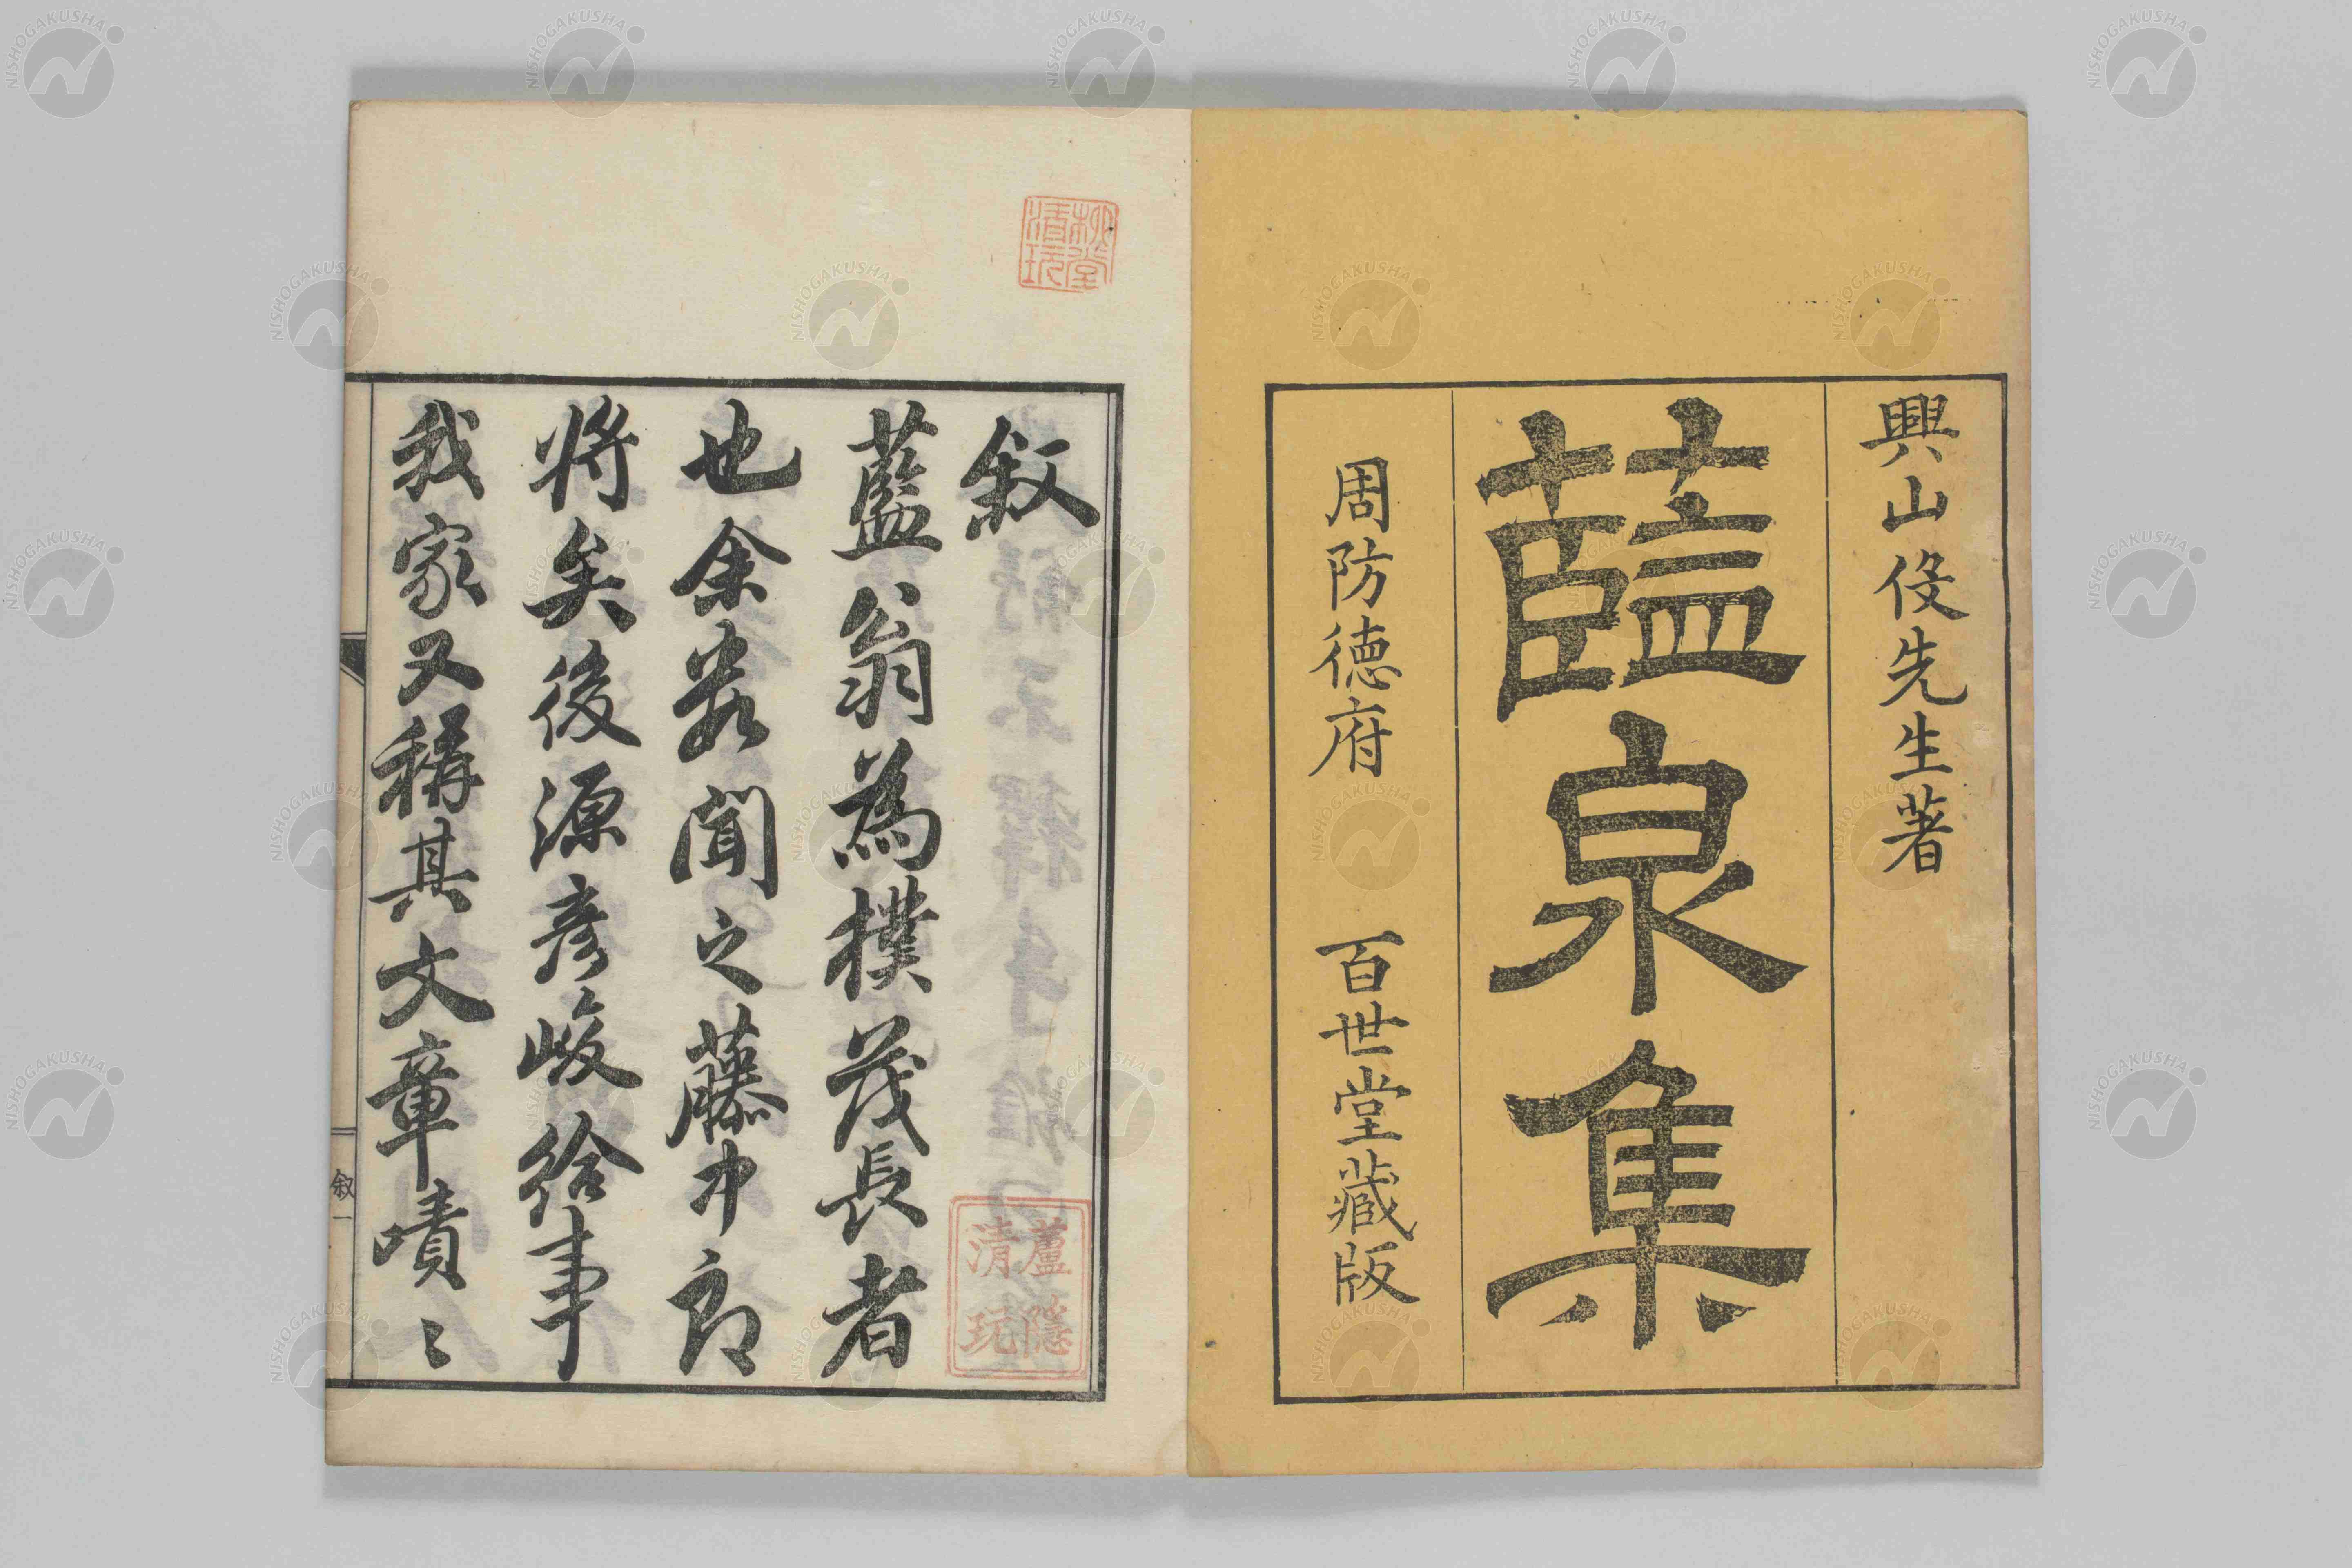 興山伇先生著
藍泉集
周防徳府 百世堂藏版
秋堂
清玩
叙
藍翁為樸茂長者
也余聞之藤中郎
將矣後源彦峻給事
我家又稱其文章嘖〻
蘆隱
清玩
叙 一
NISHOGAKUSHA